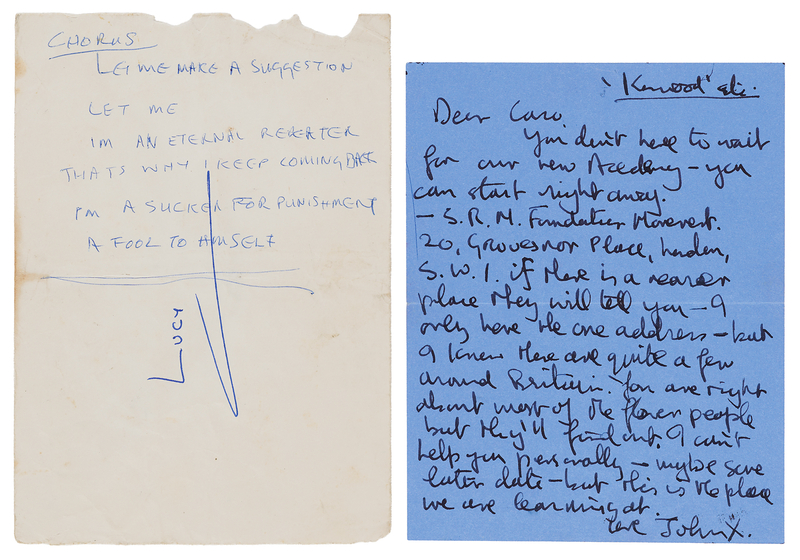 CHORUS
LET ME MAKE A SUGGESTION
LET ME
IM AN ETERNAL REVERTER
THATS WHY I KEEP COMING BACK
I'M A SUCKER FOR PUNISHMENT
A FOOL TO HIMSELF
LUCY
'Kenwood' etc.
Dear Caro,
You don't have to wait
for our new Academy – you
can start right away.
– S.R.M. Foundation Movement.
20, Grovesnor Place, London,
S.W.1. if there is a nearer
place they will tell you – I
only have the one address – but
I know there are quite a few
around Britain. You are right
about most of the flower people
but they'll find out. I can't
help you personally – maybe some
later date – but this is the place
we are learning at.
love John X.